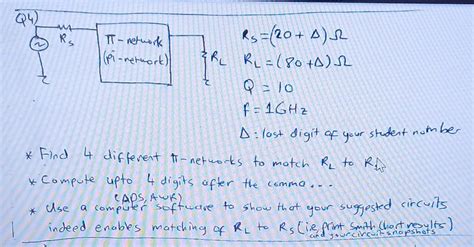 Q4)
Rs
π-network
(pi-network)
RL
Rs=(20+Δ)Ω
RL=(80+Δ)Ω
Q = 10
f = 1GHz
Δ: last digit of your student number
* Find 4 different π-networks to match RL to Rs
* Compute upto 4 digits after the comma...
(ADS, AWR)
* Use a computer software to show that your suggested circuits
indeed enables matching of RL to Rs (i.e, print Smith Chart results)
and your circuit snapshots